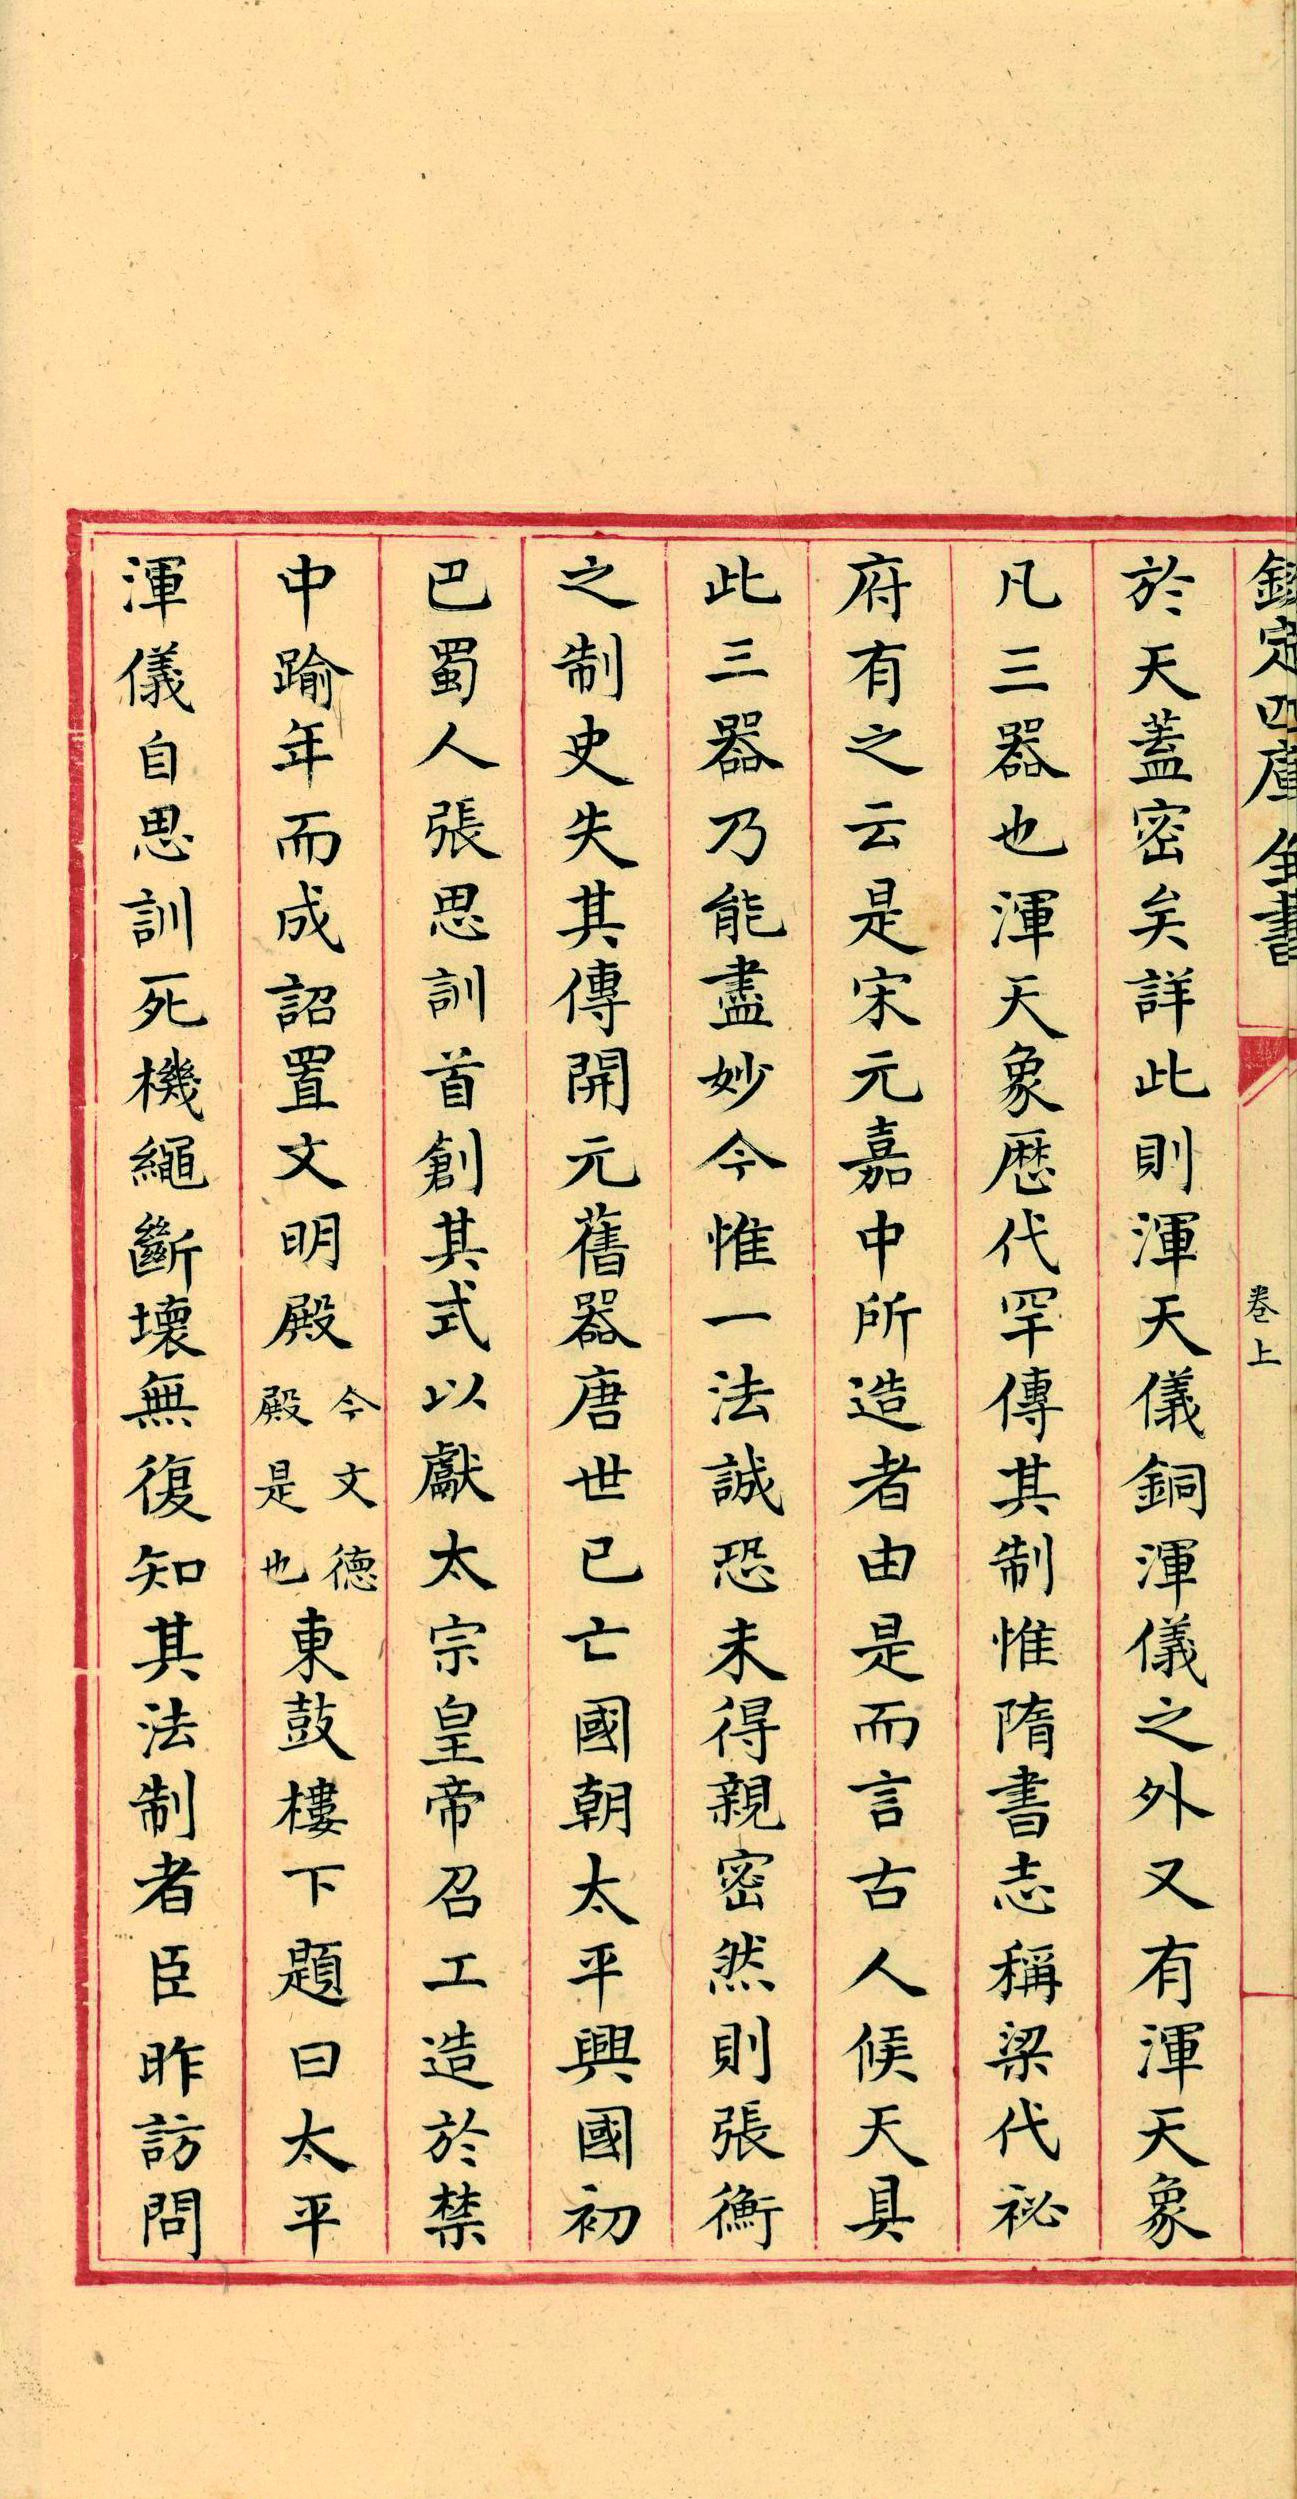 欽定四庫全書
卷上
於天蓋密矣詳此則渾天儀銅渾儀之外又有渾天象
凡三器也渾天象歷代罕傳其制惟隋書志稱梁代祕
府有之云是宋元嘉中所造者由是而言古人候天具
此三器乃能盡妙今惟一法誠恐未得親密然則張衡
之制史失其傳開元舊器唐世已亡國朝太平興國初
巴蜀人張思訓首創其式以獻太宗皇帝召工造於禁
中踰年而成詔置文明殿今文德殿是也東鼓樓下題曰太平
渾儀自思訓死機繩斷壞無復知其法制者臣昨訪問